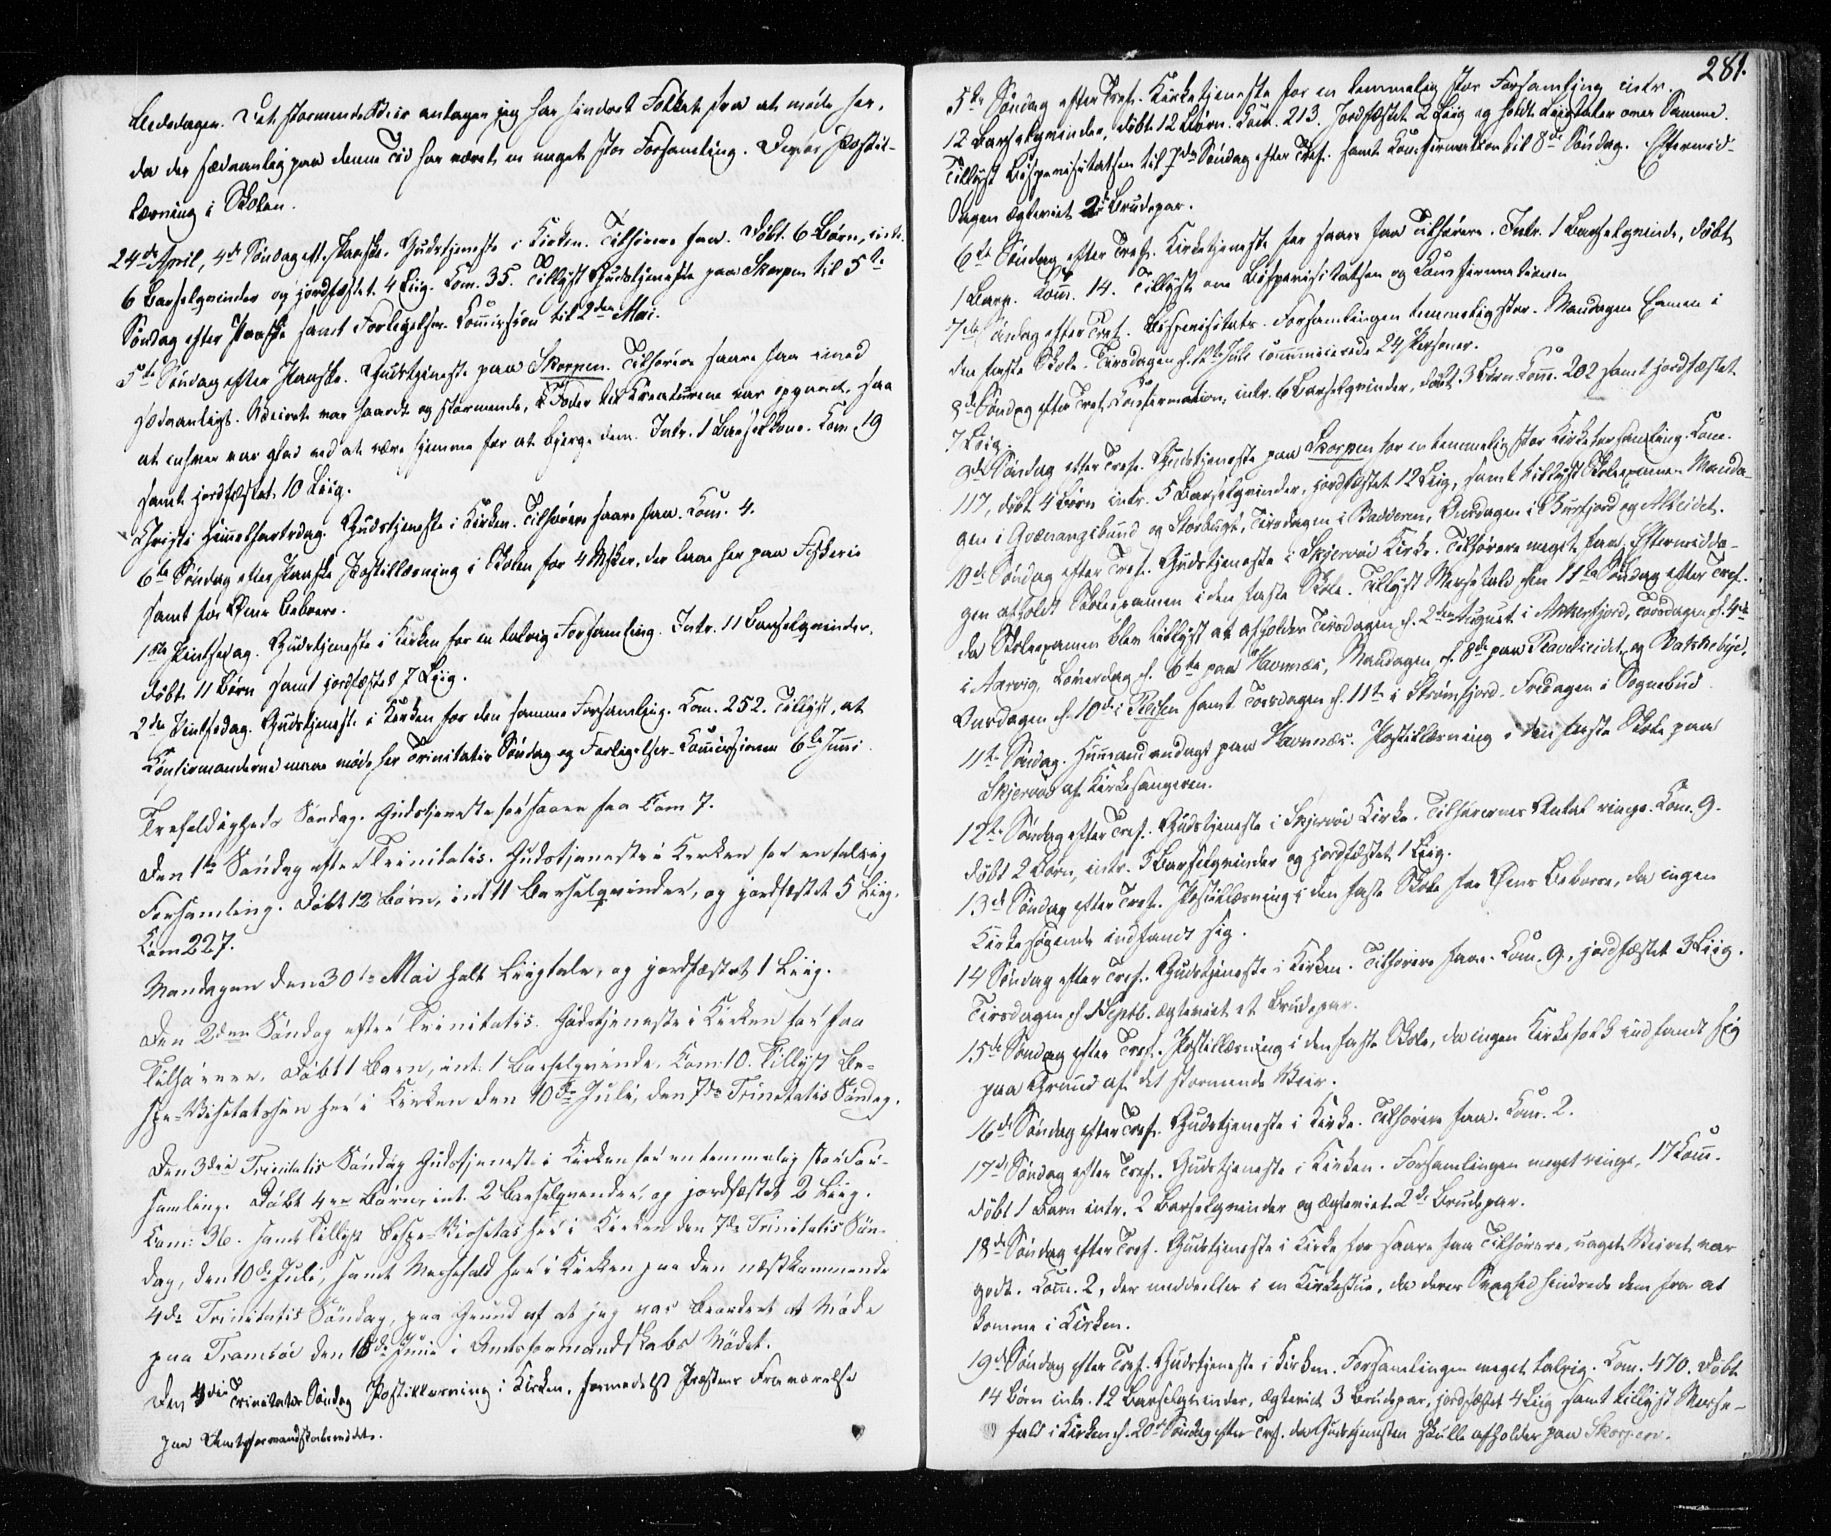 Bededagen. Det stormende Veir antager jeg har hindret Folket fra at møde her,
da der sædvanlig paa denne Tid har været en meget stor Forsamling. Derfor Postil-
læsning i Skolen.
24de April, 4de Søndag eft. Paaske. Gudstjeneste i Kirken. Tilhørere faa. Døbt 6 Børn, intr.
6 Barselqvinder og jordfæstet 4 Liig. Com. 35. Tillyst Gudstjeneste paa Skorpen til 5te
Søndag efter Paaske samt Forligelses-Commission til 2den Mai.
5te Søndag efter Paaske. Gudstjeneste paa Skorpen. Tilhørere saare faa imod
sædvanligt. Veiret var haardt og stormende, & Foder til Kreaturene var opgaaet, saa
at enhver var glad ved at være hjemme for at bjerge dem. Intr. 1 Barselkone. Kom. 19
samt jordfæstet 10 Liig.
Christi Himmelfartsdag. Gudstjeneste i Kirken. Tilhørere saare faa. Com. 4.
6te Søndag efter Paaske Postillæsning i Skolen for 4 Msker, der laae her paa Fiskerie
samt for Øens Beboere.
1ste Pintsedag. Gudstjeneste i Kirken for en talrig Forsamling. Intr. 11 Barselqvinder,
døbt 11 Børn samt jordfæstet 7 Liig.
2den Pintsedag. Gudstjenest. i Kirken for den samme Forsamling. Com. 252. Tillyst, at
Konfirmanderne maae møde her Trinitatis Søndag og Forligelses-Commissionen 6te Juni.
Trefoldigheds Søndag. Gudstjeneste for saare faa Com 7.
Den 1te Søndag efter Trinitatis. Gudstjeneste i Kirken for en talrig
Forsamling. Døbt 12 Børn, int 11 Barselqvinder, og jordfæstet 5 Liig.
Kom 227.
Mandagen den 30te Mai holt Liigtale, og jordfæstet 1 Liig.
Den 2den Søndag efter Trinitatis. Gudstjeneste i Kirken for faa
Tilhørere. Døbt 1 Barn, int. 1 Barselqvinde. Com. 10. Tillyst Be-
spe-Visetatsen her i Kirken den 10de Juli, den 7de Trinitatis Søndag.
Den 3die Trinitatis Søndag Gudstjeneste i Kirken for en temmelig stor For-
samling. Døbt 4re Børn, int. 2 Barselqvinder, og jordfæstet 2 Liig.
Com: 36. samt Tillyst Bespe-Visetas her i Kirken den 7de Trinitatis Søn-
dag, den 10de Juli, samt Messefald her i Kirken paa den næstkommende
4de Trinitatis Søndag, paa Grund af at jeg var beordret at Møde
paa Tromsöe den 18de Juni i Amtsformandskabs Mødet.
Den 4die Trinitatis Søndag Postillæsning i Kirken, formedelst Præstens Fraværelse
paa Amtsformandskabsmødet.
281.
5te Søndag efter Tref. Kirketjeneste for en temmelig stor Forsamling intr.
12 Barselqvinder, døbt 12 Børn. Com. 213. Jordfæstet 2 Liig og holdt Liigtaler over Samme.
Tillyst Bispevisitatsen til 7de Søndag efter Tref. samt Konfirmation til 8de Søndag. Eftermid-
dagen ægteviet 2 Brudepar.
6te Søndag efter Tref. Kirketjeneste for saare faa Tilhørere. Intr. 1 Barselqvinde, døbt
1 Barn. Com. 14. Tillyste om Bispevisitatsen og Konfirmationen
7de Søndag efter Tref. Bispevisitats. Forsamlingen temmelig stor. Mandagen Examen i
den faste Skole. Tirsdagen d. 12te Juli communicerede 24 Personer.
8de Søndag efter Tref. Confirmation, intr. 6 Barselqvinder, døbt 3 Børn Com. 202 samt jordfæstet
7 Liig.
9de Søndag efter Tref. Gudstjeneste paa Skorpen for en temmelig stor Kirkeforsamling. Com.
117, døbt 4 Børn intr. 5 Barselqvinder, jordfæstet 12 Liig, samt tillyst Skoleexamen Manda-
gen i Qvænangsbund og Storbugt, Tirsdagen i Badderen, Onsdagen i Bursfjord og Alteidet.
10de Søndag efter Tref. Gudstjeneste i Skjervøi Kirke. Tilhørere meget faa. Eftermidda-
gen afholdt Skoleexamen i den faste Skole. Tillyst Messefald den 11te Søndag efter Tref.
da Skoleexamen blev tillyst at afholdes Tirsdagen d. 2den August i Akkerfjord, Torsdagen d. 4de
i Aarvig, Løverdag d. 6te paa Havnnæs, Mandagen d. 8de paa Ravelseidet og Bakkebye,
Onsdagen d. 10de i Reisen samt Torsdagen d. 11te i Strømfjord. Fredagen i Sognebud
11te Søndag. Huusandagt paa Havnnæs. Postillæsning i den faste Skole paa
Skjervøe af Kirkesangeren.
12te Søndag efter Tref. Gudstjeneste i Skjervøi Kirke. Tilhørernes Antal ringe. Kom. 9.
døbt 2 Børn, intr. 3 Barselqvinder og jordfæstet 1 Liig.
13de Søndag efter Tref. Postillæsning i den faste Skole for Øens Beboere, da ingen
Kirkesøgende indfandt sig.
14 Søndag efter Tref. Gudstjeneste i Kirken. Tilhørere faae. Com. 9, jordfæstet 3 Liig.
Tirsdagen d Septb. ægteviet et Brudepar.
15de Søndag efter Tref. Postillæsning i den faste Skole, da ingen Kirkefolk indfandt sig
paa Grund af det stormende Veir.
16de Søndag efter Tref. Gudstjeneste i Kirke. Tilhørere faa. Com. 2.
17de Søndag efter Tref. Gudstjeneste i Kirken. Forsamlingen meget ringe, 17 Comm.
døbt 1 Barn intr. 2 Barselqvinder og ægteviet 2de Brudepar.
18de Søndag efter Tref. Gudstjeneste i Kirke for saare faa Tilhørere, uagtet Veiret var
godt. Com. 2, der meddeeltes i en Kirkestue, da deres Svaghed hindrede dem fra at
komme i Kirken.
19de Søndag efter Tref. Gudstjeneste i Kirken. Forsamlingen meget talrig. Com. 470. Døbt
14 Børn intr. 12 Barselqvinder, ægteviet 3 Brudepar, jordfæstet 4 Liig samt tillyst Messe-
fald i Kirken d. 20de Søndag efter Tref. da Gudstjenesten skulle afholdes paa Skorpen.